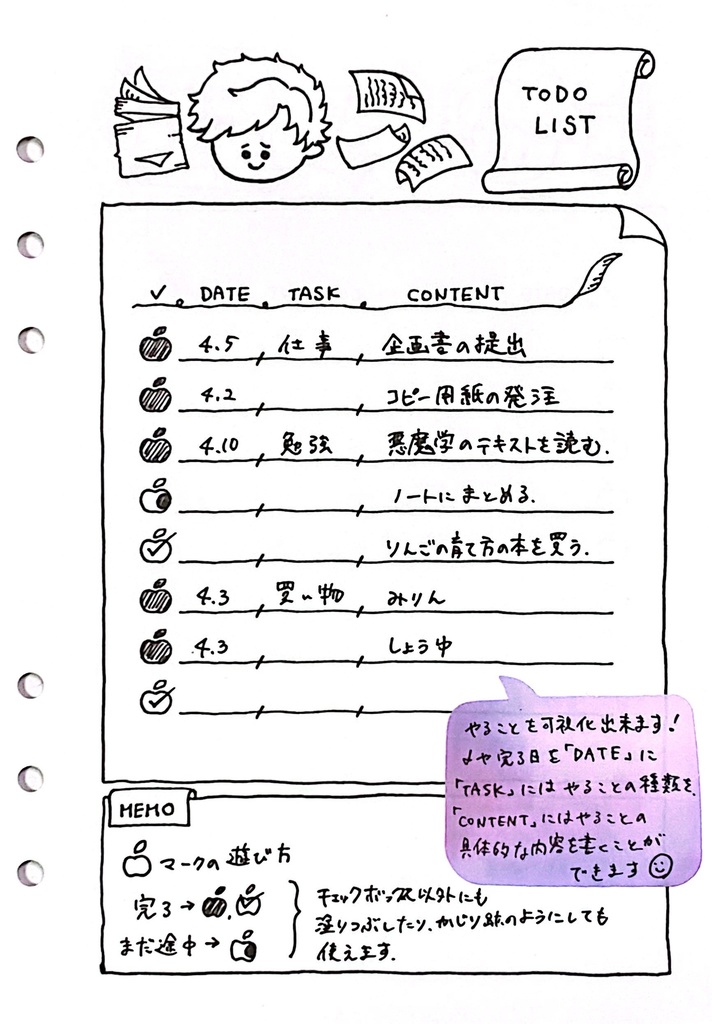 TODO
LIST
✓ DATE TASK CONTENT
4.5 仕事 企画書の提出
4.2 コピー用紙の発注
4.10 勉強 悪魔学のテキストを読む.
ノートにまとめる.
りんごの育て方の本を買う.
4.3 買い物 みりん
4.3 しょうゆ
やることを可視化出来ます!
〆や完了日を「DATE」に
「TASK」にはやることの種類を、
「CONTENT」にはやることの
具体的な内容を書くことが
できます
MEMO
マークの遊び方
完了→ 、
まだ途中→
チェックボックス以外にも
塗りつぶしたり、かじり跡のようにしても
使えます.